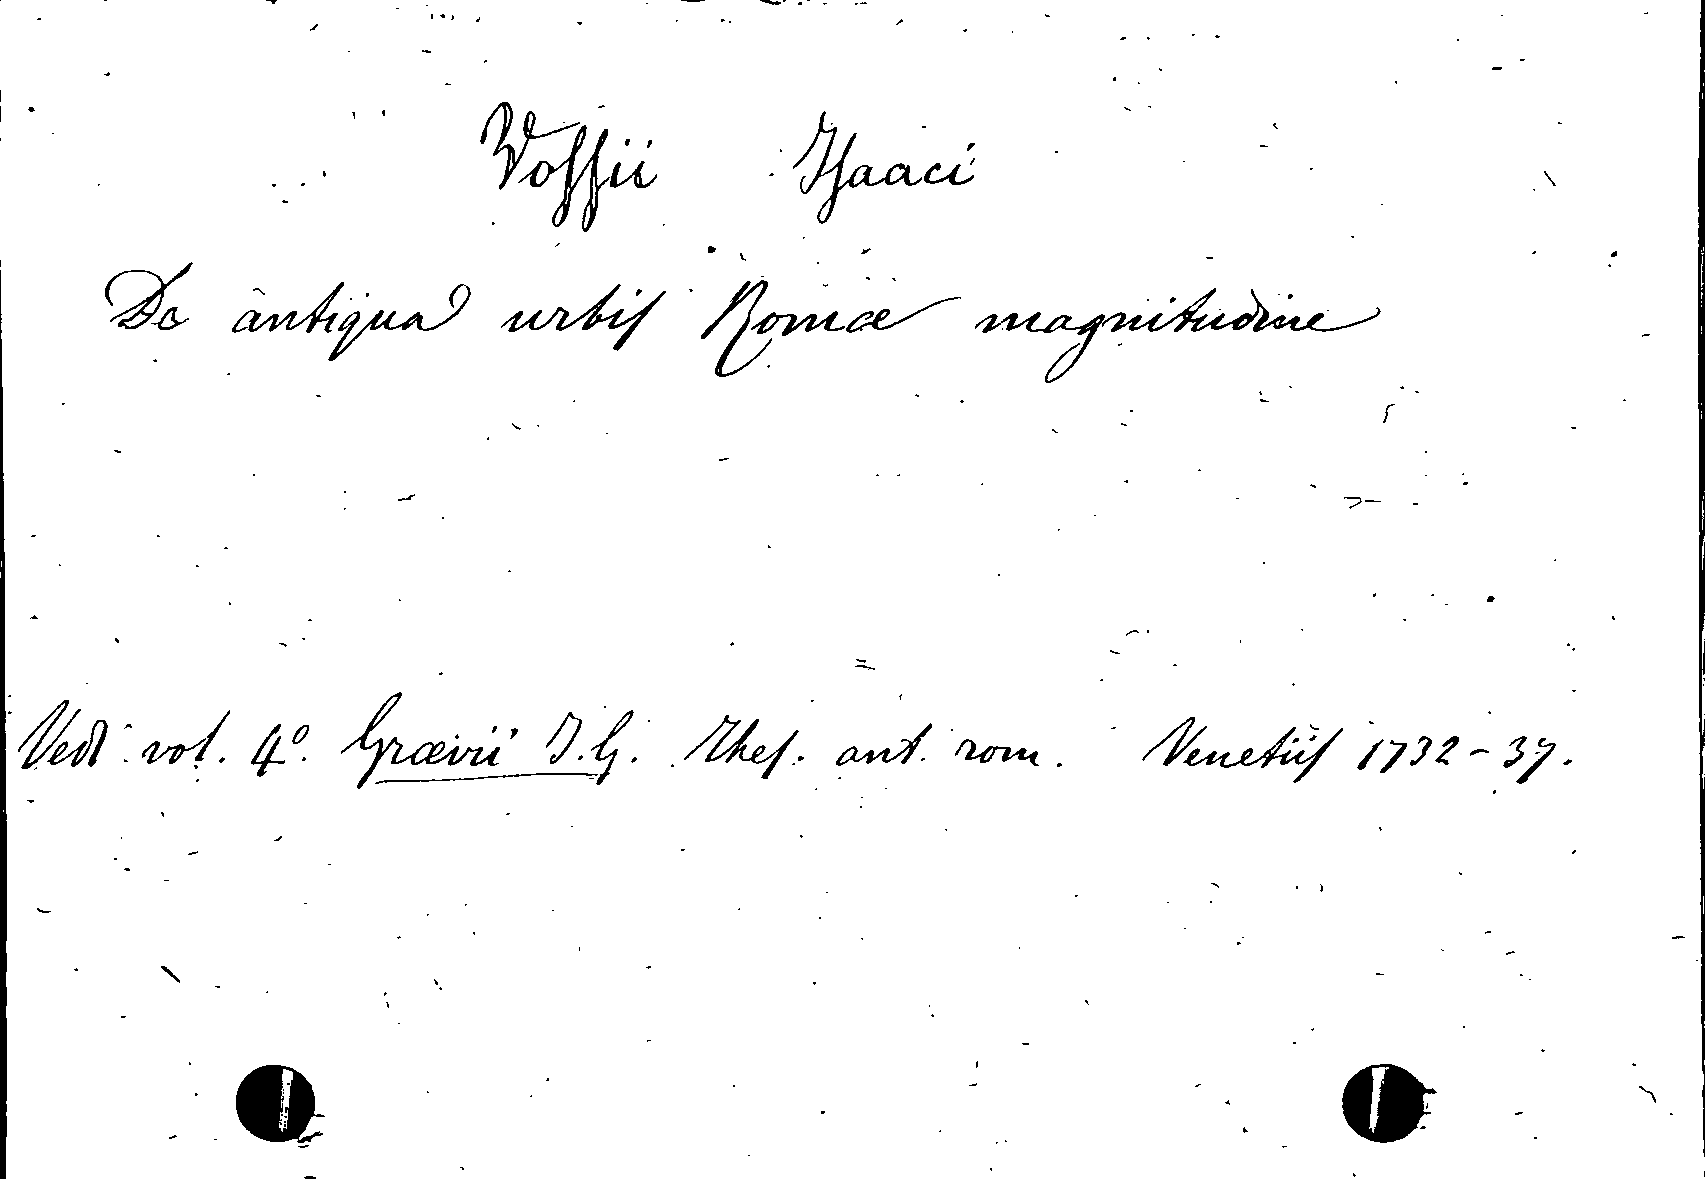 Vossii Isaaci
De antiqua urbis Romæ magnitudine
Vedi vol. 4º. Grævii J. G. Thes. ant. rom. Venetiis 1732-37.